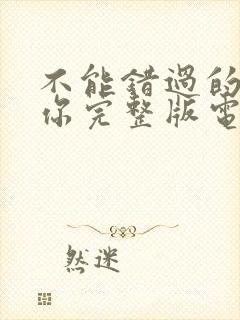 不能錯過的
你完整版電
然迷